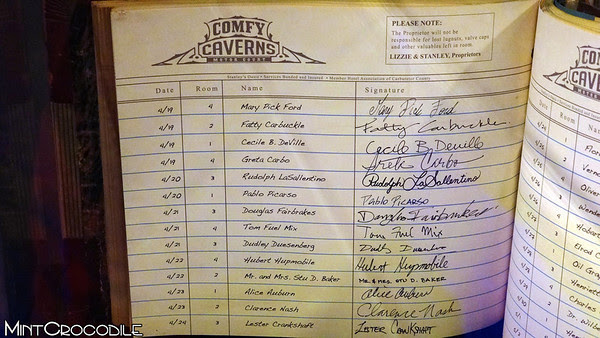 COMFY
CAVERNS
MOTOR COURT
PLEASE NOTE:
The Proprietor will not be
responsible for lost lugnuts, valve caps
and other valuables left in room.
LIZZIE & STANLEY, Proprietors
Stanley's Oasis • Services Bonded and Insured • Member Hotel Association of Carburetor County
Date Room Name Signature
4/19 4 Mary Pick Ford Mary Pick Ford
4/19 2 Fatty Carbuckle Fatty Carbuckle
4/19 1 Cecile B. DeVille Cecile B. Deville
4/19 4 Greta Carbo Greta Carbo
4/20 3 Rudolph LaSallentino Rudolph LaSallentino
4/20 1 Pablo Picarso Pablo Picarso
4/21 3 Douglas Fairbrakes Douglas Fairbrakes
4/21 4 Tom Fuel Mix Tom Fuel Mix
4/21 3 Dudley Duesenberg
4/22 4 Hubert Hupmobile Hubert Hupmobile
4/22 2 Mr. and Mrs. Stu D. Baker MR. & MRS. STU D. BAKER
4/23 1 Alice Auburn Alice Auburn
4/23 2 Clarence Nash Clarence Nash
4/24 3 Lester Crankshaft LESTER CRANKSHAFT
COMFY
CAVERNS
Date Room Name
MINTCROCODILE